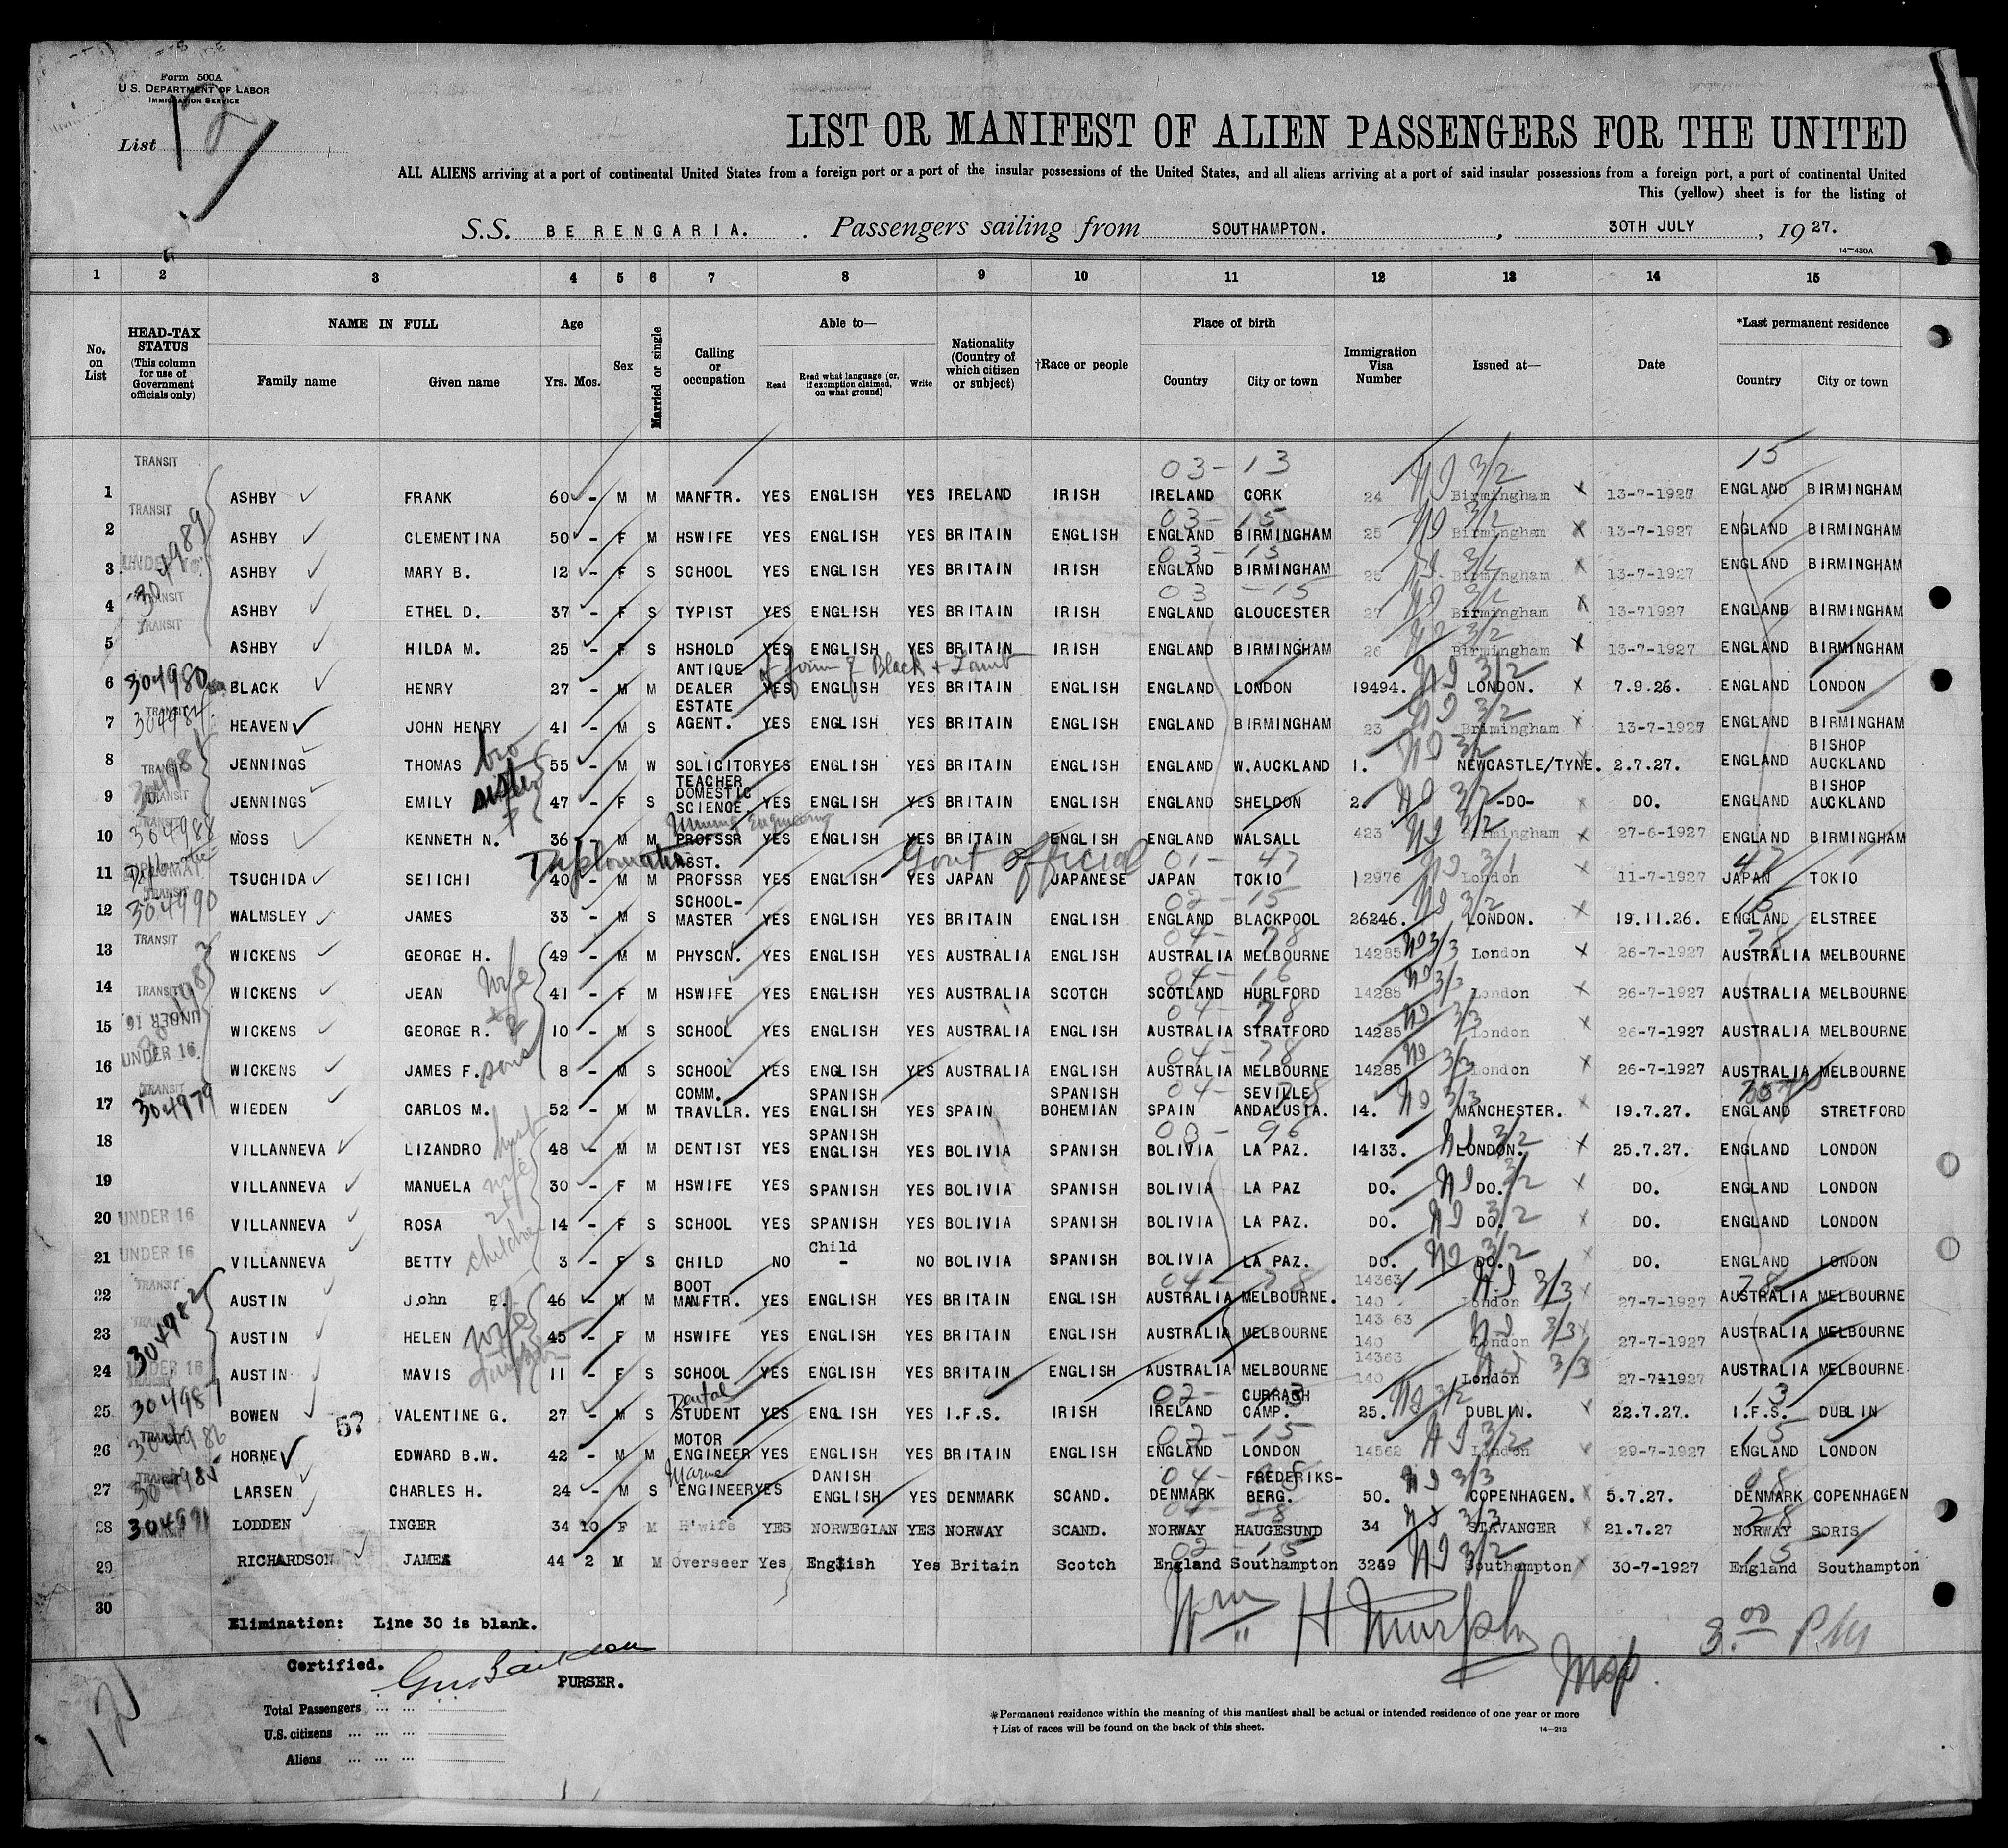 Form 500A
U.S. DEPARTMENT OF LABOR
IMMIGRATION SERVICE
List 12
LIST OR MANIFEST OF ALIEN PASSENGERS FOR THE UNITED
ALL ALIENS arriving at a port of continental United States from a foreign port or a port of the insular possessions of the United States, and all aliens arriving at a port of said insular possessions from a foreign port, a port of continental United
This (yellow) sheet is for the listing of
S.S. BERENGARIA. Passengers sailing from SOUTHAMPTON. , 30TH JULY , 1927.
14-430A
1 2 3 4 5 6 7 8 9 10 11 12 13 14 15
No. on List HEAD-TAX STATUS (This column for use of Government officials only) NAME IN FULL Family name Given name Age Yrs. Mos. Sex Married or single Calling or occupation Able to— Read Read what language (or, if exemption claimed, on what ground) Write Nationality (Country of which citizen or subject) †Race or people Place of birth Country City or town Immigration Visa Number Issued at— Date *Last permanent residence Country City or town
TRANSIT 03-13 NI 3/2 15
1 ASHBY FRANK 60 - M M MANFTR. YES ENGLISH YES IRELAND IRISH IRELAND CORK 24 Birmingham 13-7-1927 ENGLAND BIRMINGHAM
TRANSIT 03-15 NI 3/2
2 ASHBY CLEMENTINA 50 - F M HSWIFE YES ENGLISH YES BRITAIN ENGLISH ENGLAND BIRMINGHAM 25 Birmingham 13-7-1927 ENGLAND BIRMINGHAM
304989 UNDER 16 03-15
3 ASHBY MARY B. 12 - F S SCHOOL YES ENGLISH YES BRITAIN IRISH ENGLAND BIRMINGHAM 25 Birmingham 13-7-1927 ENGLAND BIRMINGHAM
TRANSIT 03-15 NI 3/2
4 ASHBY ETHEL D. 37 - F S TYPIST YES ENGLISH YES BRITAIN IRISH ENGLAND GLOUCESTER 27 Birmingham 13-71927 ENGLAND BIRMINGHAM
TRANSIT NI 3/2
5 ASHBY HILDA M. 25 - F S HSHOLD YES ENGLISH YES BRITAIN IRISH ENGLAND BIRMINGHAM 26 Birmingham 13-7-1927 ENGLAND BIRMINGHAM
of firm of Black & Lamb
6 304980 BLACK HENRY 27 - M M ANTIQUE DEALER YES ENGLISH YES BRITAIN ENGLISH ENGLAND LONDON 19494. NI 3/2 LONDON. 7.9.26. ENGLAND LONDON
7 TRANSIT HEAVEN JOHN HENRY 41 - M S ESTATE AGENT. YES ENGLISH YES BRITAIN ENGLISH ENGLAND BIRMINGHAM 23 NI 3/2 Brimingham 13-7-1927 ENGLAND BIRMINGHAM
8 TRANSIT JENNINGS THOMAS bro 55 - M W SOLICITOR YES ENGLISH YES BRITAIN ENGLISH ENGLAND W.AUCKLAND 1. NI 3/2 NEWCASTLE/TYNE. 2.7.27. ENGLAND BISHOP AUCKLAND
9 TRANSIT JENNINGS EMILY sister 47 - F S TEACHER DOMESTIC SCIENCE. YES ENGLISH YES BRITAIN ENGLISH ENGLAND SHELDON 2. NI 3/2 -DO- DO. ENGLAND BISHOP AUCKLAND
10 304988 MOSS KENNETH N. 36 - M M Mining Engineering PROFSSR YES ENGLISH YES BRITAIN ENGLISH ENGLAND WALSALL 423 NI 3/2 Birmingham 27-6-1927 ENGLAND BIRMINGHAM
Diplomatic Govt official 01-47 NI 3/1 47
11 Diplomatic DIPLOMAT TSUCHIDA SEIICHI 40 - M M ASST. PROFSSR YES ENGLISH YES JAPAN JAPANESE JAPAN TOKIO 12976 London 11-7-1927 JAPAN TOKIO
TRANSIT 02-15 NI 3/2 15
12 304990 WALMSLEY JAMES 33 - M S SCHOOL-MASTER YES ENGLISH YES BRITAIN ENGLISH ENGLAND BLACKPOOL 26246. LONDON. 19.11.26. ENGLAND ELSTREE
TRANSIT 04-78 78
13 WICKENS GEORGE H. 49 - M M PHYSCN. YES ENGLISH YES AUSTRALIA ENGLISH AUSTRALIA MELBOURNE 14285 NI 3/3 London 26-7-1927 AUSTRALIA MELBOURNE
04-16
14 TRANSIT WICKENS JEAN wife 41 - F M HSWIFE YES ENGLISH YES AUSTRALIA SCOTCH SCOTLAND HURLFORD 14285 NI 3/3 London 26-7-1927 AUSTRALIA MELBOURNE
04-78
15 UNDER 16 WICKENS GEORGE R. + 2 10 - M S SCHOOL YES ENGLISH YES AUSTRALIA ENGLISH AUSTRALIA STRATFORD 14285 NI 3/3 London 26-7-1927 AUSTRALIA MELBOURNE
04-78
16 UNDER 16 WICKENS JAMES F. sons 8 - M S SCHOOL YES ENGLISH YES AUSTRALIA ENGLISH AUSTRALIA MELBOURNE 14285 NI 3/3 London 26-7-1927 AUSTRALIA MELBOURNE
TRANSIT 04-
17 304979 WIEDEN CARLOS M. 52 - M M COMM. TRAVLLR. YES SPANISH ENGLISH YES SPAIN SPANISH BOHEMIAN SPAIN SEVILLE ANDALUSIA. 14. NI 3/3 MANCHESTER. 19.7.27. ENGLAND STRETFORD
03-96
18 VILLANNEVA LIZANDRO husb 48 - M M DENTIST YES SPANISH ENGLISH YES BOLIVIA SPANISH BOLIVIA LA PAZ. 14133. NI 3/2 LONDON. 25.7.27. ENGLAND LONDON
19 VILLANNEVA MANUELA wife 30 - F M HSWIFE YES SPANISH YES BOLIVIA SPANISH BOLIVIA LA PAZ DO. NI 3/2 DO. DO. ENGLAND LONDON
20 UNDER 16 VILLANNEVA ROSA 2 14 - F S SCHOOL YES SPANISH YES BOLIVIA SPANISH BOLIVIA LA PAZ. DO. NI 3/2 DO. DO. ENGLAND LONDON
21 UNDER 16 VILLANNEVA BETTY children 3 - F S CHILD NO Child - NO BOLIVIA SPANISH BOLIVIA LA PAZ. DO. NI 3/2 DO. DO. ENGLAND LONDON
TRANSIT 04-78 14363 78
22 AUSTIN John E. 46 - M M BOOT MANFTR. YES ENGLISH YES BRITAIN ENGLISH AUSTRALIA MELBOURNE. 140 NI 3/3 London 27-7-1927 AUSTRALIA MELBOURNE
143 63
23 304982 AUSTIN HELEN wife 45 - F M HSWIFE YES ENGLISH YES BRITAIN ENGLISH AUSTRALIA MELBOURNE 140 NI 3/3 London 27-7-1927 AUSTRALIA MELBOURNE
14363
24 UNDER 16 AUSTIN MAVIS 11 - F S SCHOOL YES ENGLISH YES BRITAIN ENGLISH AUSTRALIA MELBOURNE 140 NI 3/3 London 27-7-1927 AUSTRALIA MELBOURNE
TRANSIT 02- 13
25 304987 BOWEN 57 VALENTINE G. 27 - M S Dental STUDENT YES ENGLISH YES I.F.S. IRISH IRELAND CURRAGH CAMP. 25. NI 3/2 DUBLIN. 22.7.27. I.F.S. DUBLIN
TRANSIT 02-15 15
26 304986 HORNE EDWARD B.W. 42 - M M MOTOR ENGINEER YES ENGLISH YES BRITAIN ENGLISH ENGLAND LONDON 14562 NI 3/2 London 29-7-1927 ENGLAND LONDON
TRANSIT 04-
27 304985 LARSEN CHARLES H. 24 - M S Marine ENGINEER YES DANISH ENGLISH YES DENMARK SCAND. DENMARK FREDERIKS-BERG. 50. NI 3/3 COPENHAGEN. 5.7.27. DENMARK COPENHAGEN
04-28 28
28 304991 LODDEN INGER 34 10 F M H'wife YES NORWEGIAN YES NORWAY SCAND. NORWAY HAUGESUND 34 NI 3/3 STAVANGER 21.7.27 NORWAY SORIS
02-15 15
29 RICHARDSON JAMES 44 2 M M Overseer Yes English Yes Britain Scotch England Southampton 3269 NI 3/2 Southampton 30-7-1927 England Southampton
30
Elimination: Line 30 is blank.
Wm H Murphy
Insp.
3.00 PM
Certified.
PURSER.
Total Passengers ... ...
U.S. citizens ... ... ...
Aliens ... ... ...
*Permanent residence within the meaning of this manifest shall be actual or intended residence of one year or more
†List of races will be found on the back of this sheet.
14-213
12